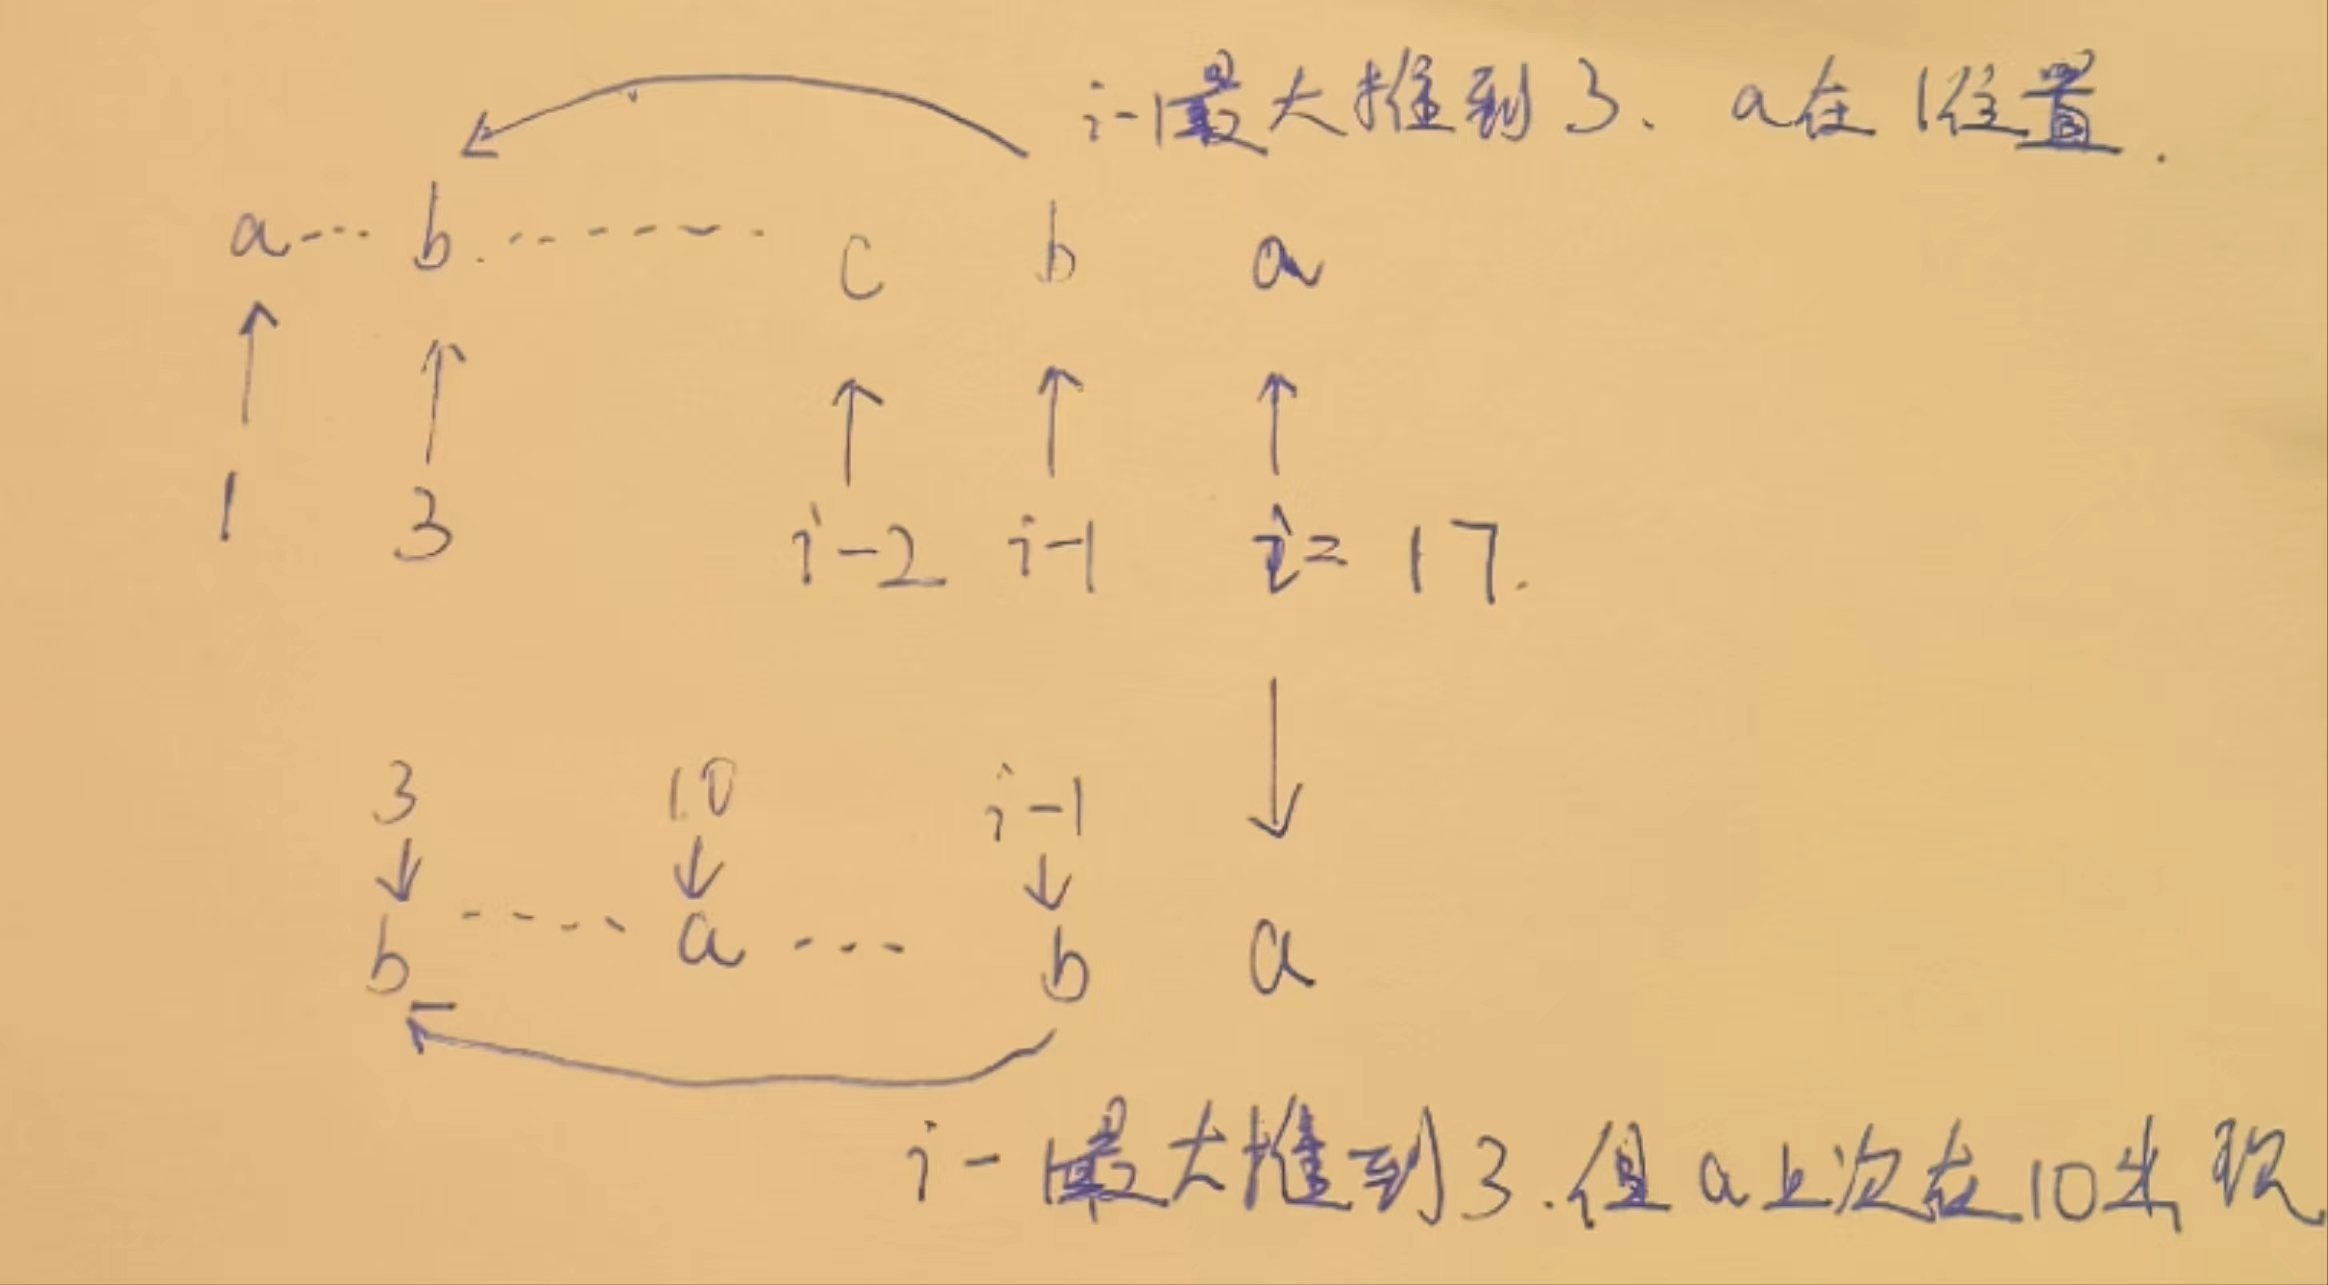 i-1最大推到3、a在1位置.
a---b.------- c b a
1 3 i-2 i-1 i=17.
3 10 i-1
b ---- a --- b a
i-1最大推到3.但a上次在10出现